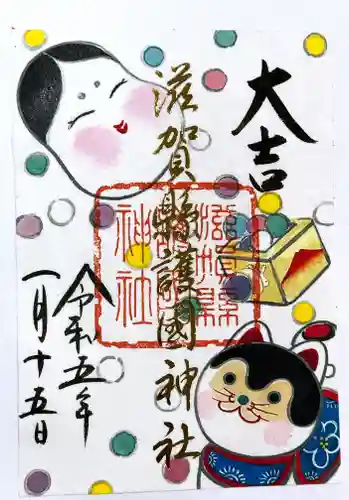 大吉
滋賀縣護國神社
滋賀縣護國神社
令和五年
一月十五日